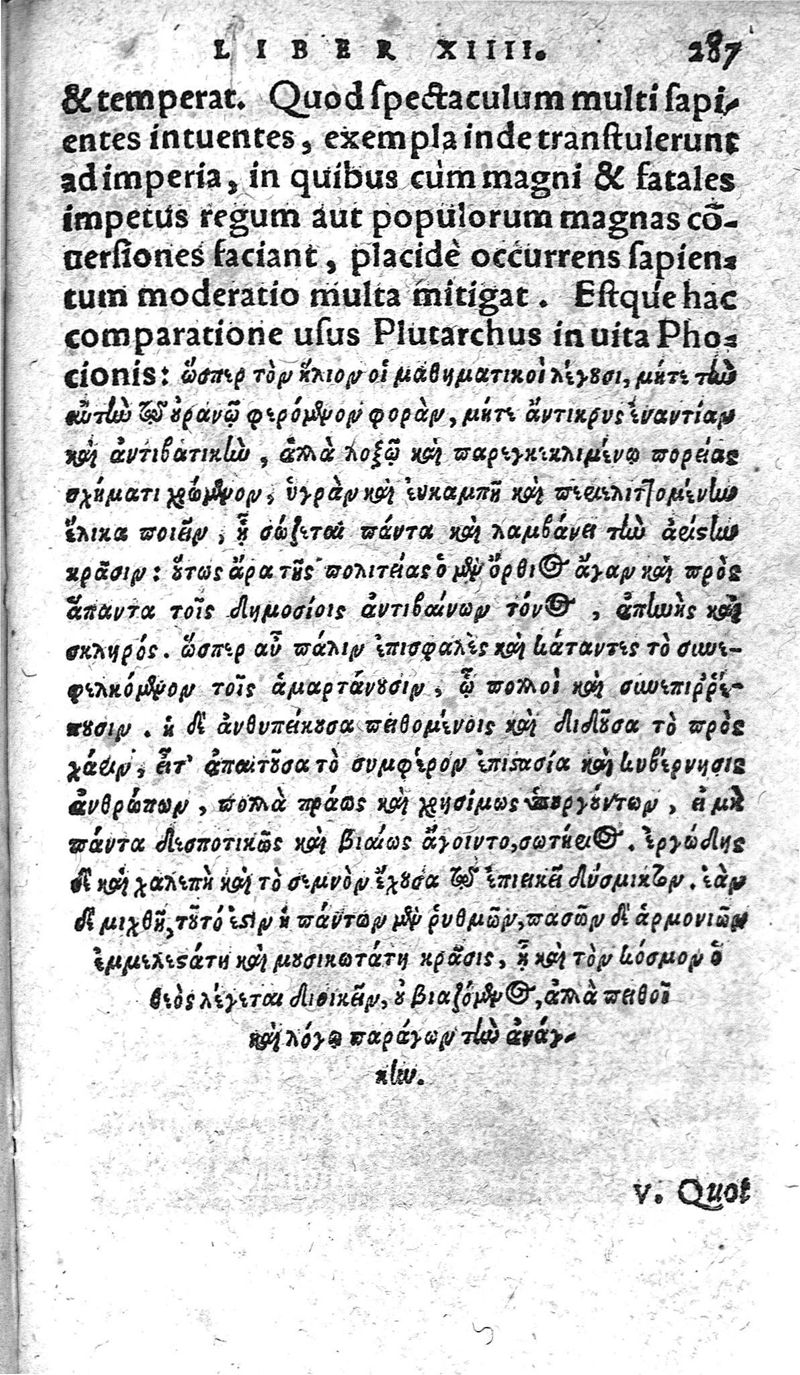 LIBER XIIII. 287
& temperat. Quod ſpectaculum multi ſapi-
entes intuentes, exempla inde tranſtulerunt
ad imperia, in quibus cùm magni & fatales
impetus regum aut populorum magnas cō-
uerſiones faciant, placidè occurrens ſapien-
tum moderatio multa mitigat. Eſtque hac
comparatione uſus Plutarchus in uita Pho-
cionis: ὥσπερ τὸν ἥλιον οἱ μαθηματικοὶ λέγουσι, μήτε τὴν
αὐτὴν τῷ οὐρανῷ φερόμενον φορὰν, μήτε ἄντικρυς ἐναντίαν
καὶ ἀντιβατικὴν, ἀλλὰ λοξῷ καὶ παρεγκεκλιμένῳ πορείας
σχήματι χρώμενον, ὑγρὰν καὶ εὐκαμπῆ καὶ περιελιττομένην
ἕλικα ποιεῖν, ᾗ σώζεται πάντα καὶ λαμβάνει τὴν ἀρίστην
κρᾶσιν: οὕτως ἄρα τῆς πολιτείας ὁ μὲν ὄρθιος ἄγαν καὶ πρὸς
ἅπαντα τοῖς δημοσίοις ἀντιβαίνων τόνος, ἀπηνὴς καὶ
σκληρός. ὥσπερ αὖ πάλιν ἐπισφαλὲς καὶ κάταντες τὸ συνε-
φελκόμενον τοῖς ἁμαρτάνουσιν, ᾧ πολλοὶ καὶ συνεπιῤῥέ-
πουσιν. ἡ δὲ ἀνθυπείκουσα πειθομένοις καὶ διδοῦσα τὸ πρὸς
χάριν, εἶτ' ἀπαιτοῦσα τὸ συμφέρον ἐπιστασία καὶ κυβέρνησις
ἀνθρώπων, πολλὰ πράως καὶ χρησίμως ὑπουργούντων, εἰ μὴ
πάντα δεσποτικῶς καὶ βιαίως ἄγοιντο, σωτήριος. ἐργώδης
δὲ καὶ χαλεπὴ καὶ τὸ σεμνὸν ἔχουσα τῷ ἐπιεικεῖ δύσμικτον. ἐὰν
δὲ μιχθῇ, τοῦτό ἐστιν ἡ πάντων μὲν ῥυθμῶν, πασῶν δὲ ἁρμονιῶν
ἐμμελεστάτη καὶ μουσικωτάτη κρᾶσις, ᾗ καὶ τὸν κόσμον ὁ
θεὸς λέγεται διοικεῖν, οὐ βιαζόμενος, ἀλλὰ πειθοῖ
καὶ λόγῳ παράγων τὴν ἀνάγ-
κην.
V. Quot